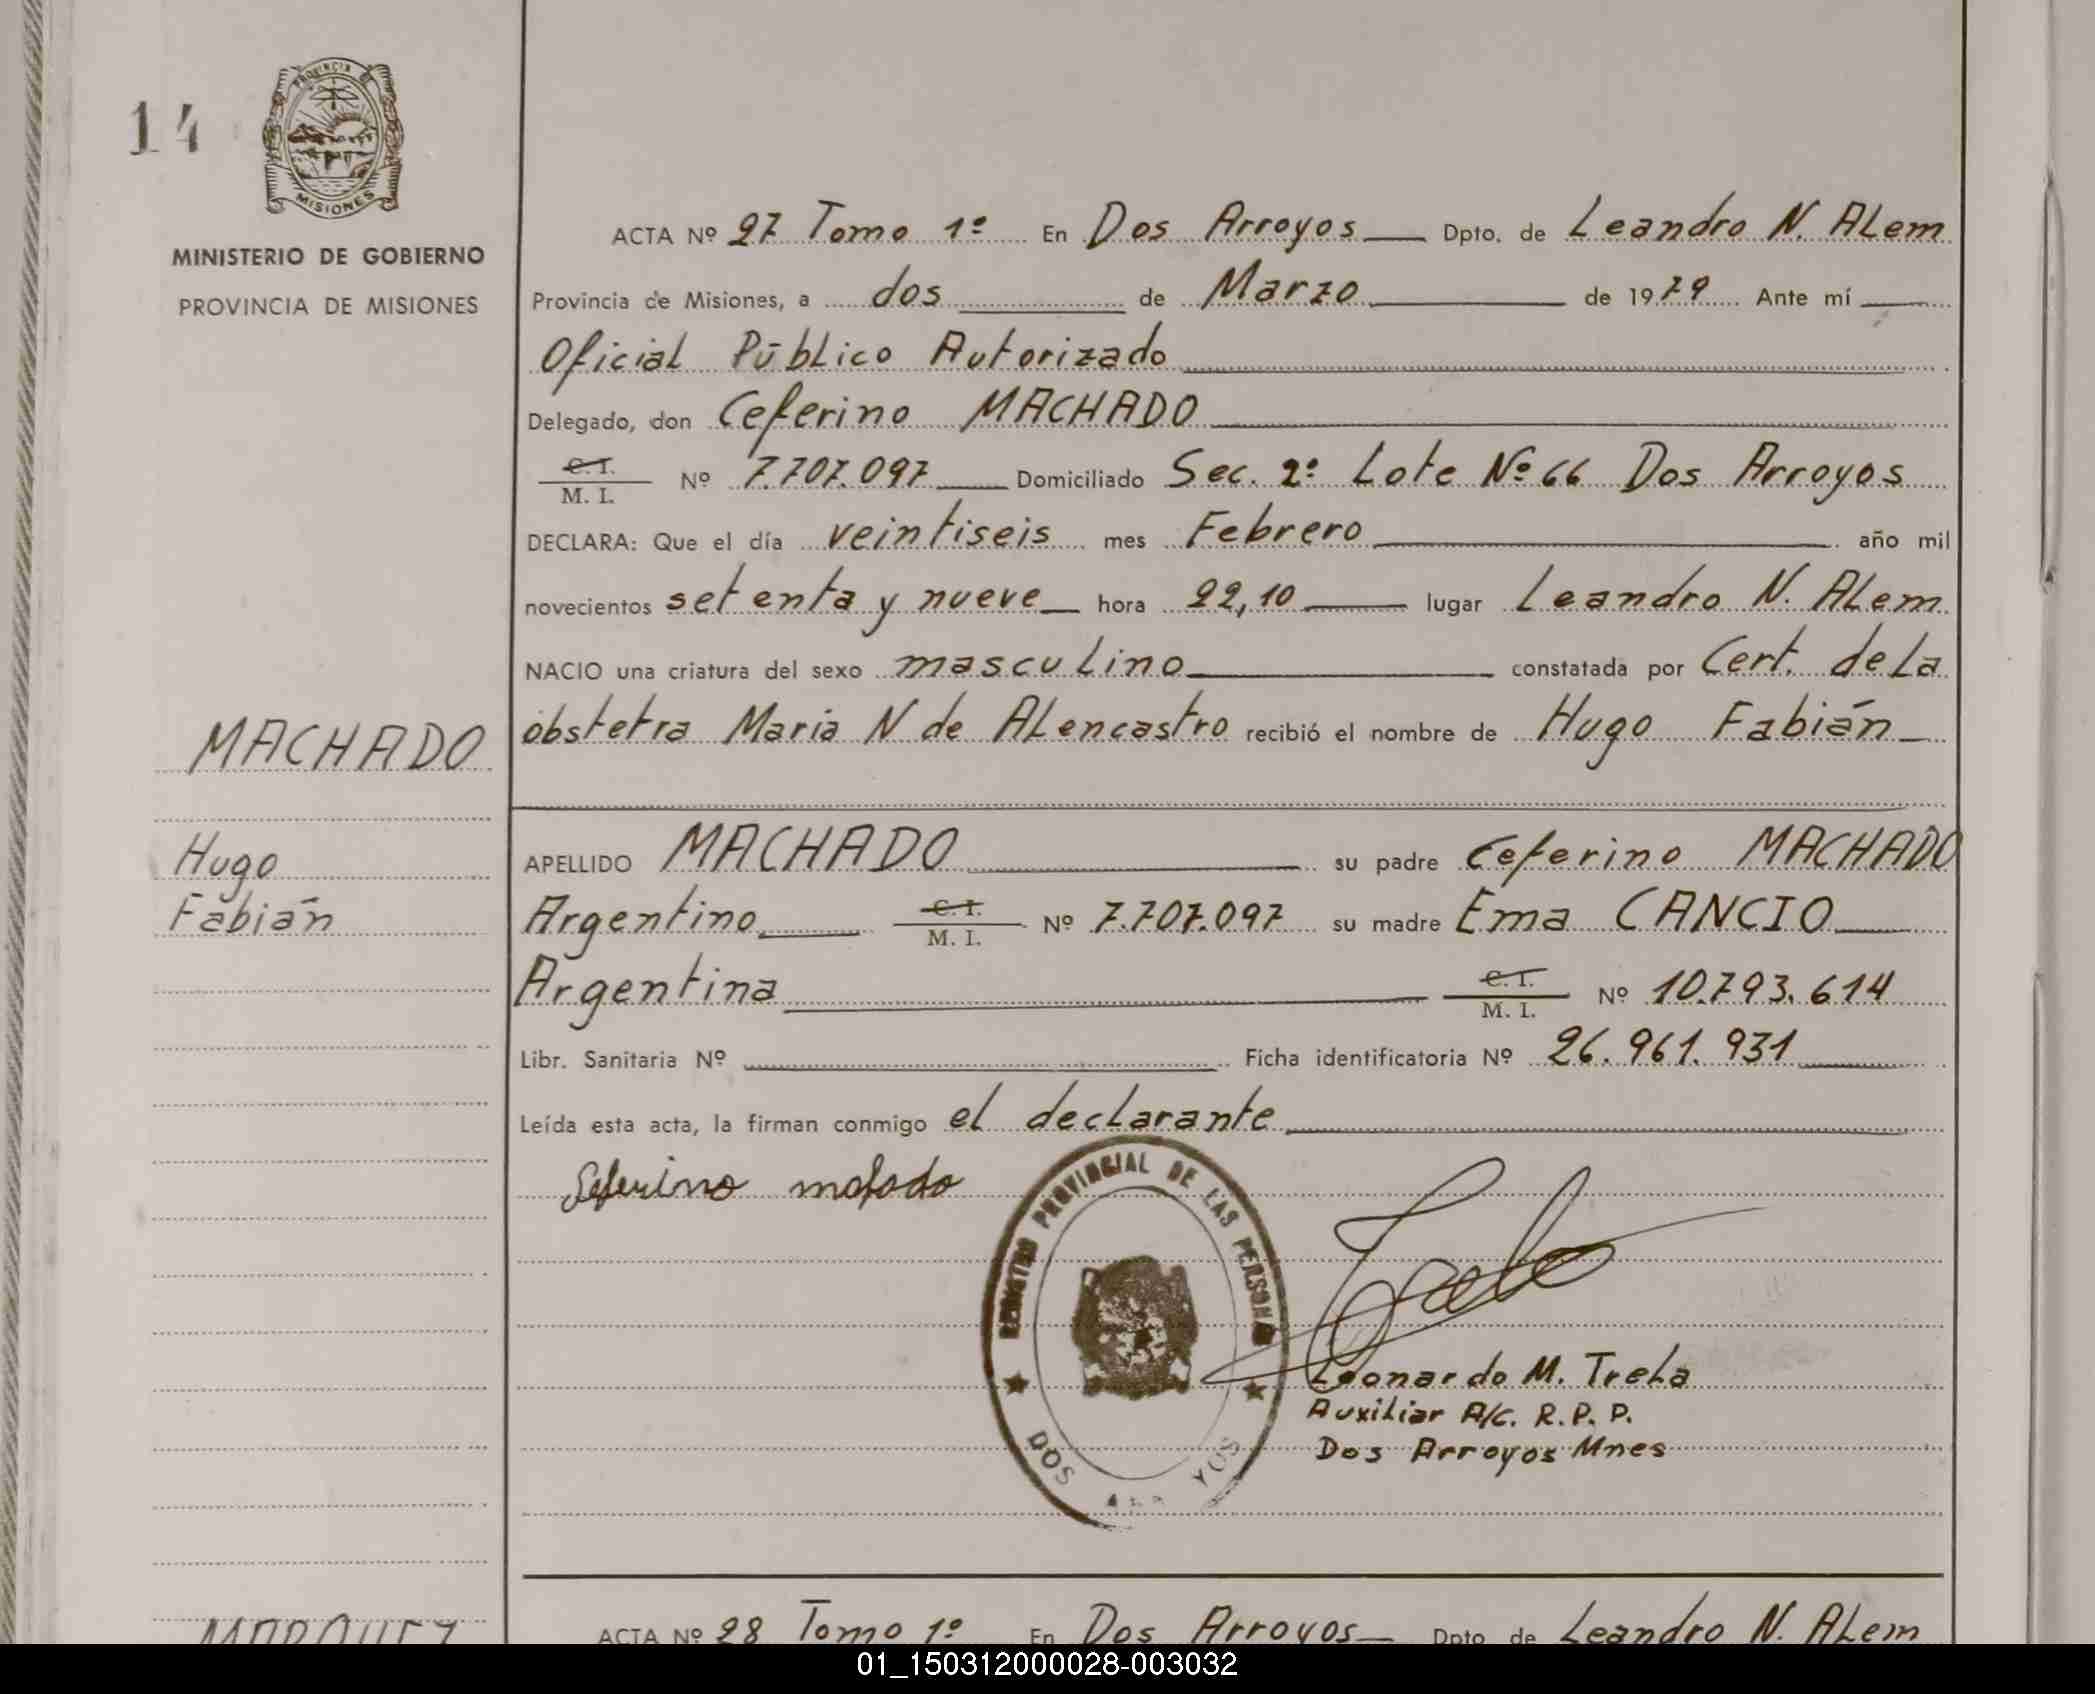 14
PROVINCIA DE
MISIONES
MINISTERIO DE GOBIERNO
PROVINCIA DE MISIONES
MACHADO
Hugo
Fabián
ACTA Nº 27 Tomo 1º En Dos Arroyos Dpto. de Leandro N. ALem
Provincia de Misiones, a dos de Marzo de 1979 Ante mí
Oficial Público Autorizado
Delegado, don Ceferino MACHADO
C. I.
M. I. Nº 7.707.097 Domiciliado Sec. 2º Lote Nº 66 Dos Arroyos
DECLARA: Que el día veintiseis mes Febrero año mil
novecientos setenta y nueve hora 22,10 lugar Leandro N. ALem
NACIO una criatura del sexo masculino constatada por Cert. de La
obstetra María N de ALencastro recibió el nombre de Hugo Fabián
APELLIDO MACHADO su padre Ceferino MACHADO
Argentino C. I. M. I. Nº 7.707.097 su madre Ema CANCIO
Argentina C. I. M. I. Nº 10.793.614
Libr. Sanitaria Nº Ficha identificatoria Nº 26.961.931
Leída esta acta, la firman conmigo el declarante
Seferino
REGISTRO PROVINCIAL DE LAS PERSONAS
DOS ARROYOS
Leonardo M. Trela
Auxiliar A/C. R. P. P.
Dos Arroyos Mnes
MARQUEZ
ACTA Nº 28 Tomo 1º En Dos Arroyos Dpto de Leandro N. ALem
01_150312000028-003032